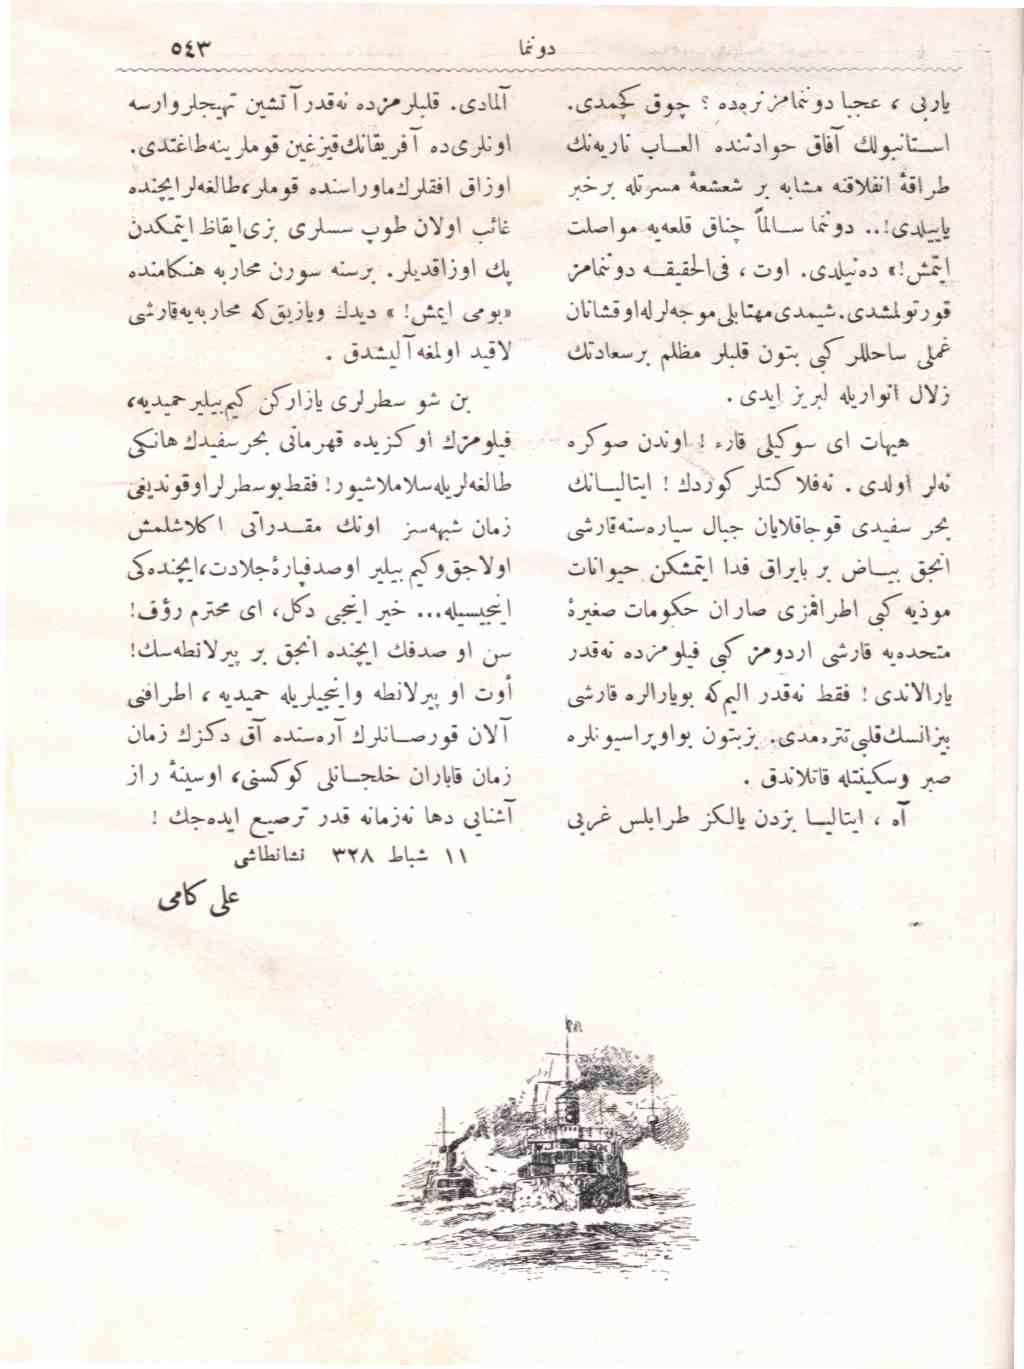 دوننما
٥٤٣
یاربی ، عجبا دوننمامز نره‌ده ؟ چوق کچمدی.
استانبولك آفاق حوادثنده العاب ناریه‌نك
طراقۀ انفلاقنه مشابه بر شعشعۀ مسرتله بر خبر
یاییلدی!.. دوننما سالماً چناق قلعه‌یه مواصلت
ایتمش!» ده‌نیلدی. اوت ، فی‌الحقیقه دوننمامز
قورتولمشدی. شیمدی مهتابلی موجه‌لرله اوقشانان
غملی ساحللر کبی بتون قلبلر مظلم بر سعادتك
زلال انواریله لبریز ایدی .
هیهات ای سوکیلی قارء ! اوندن صوکره
نه‌لر اولدی . نه فلاکتلر کوردك ! ایتالیانك
بحر سفیدی قوجاقلایان جبال سیاره‌سنه قارشی
انجق بیاض بر بایراق فدا ایتمشکن حیوانات
موذیه کبی اطرافمزی صاران حکومات صغیرۀ
متحده‌یه قارشی اردومز کبی فیلومزده نه‌قدر
یارالاندی ! فقط نه‌قدر الیم که بویارالره قارشی
بیزانسك قلبی تتره‌مدی. بزبتون بواوپراسیونلره
صبر وسکینتله قاتلاندق .
آه ، ایتالیا بزدن یالکز طرابلس غربی
آلمادی. قلبلرمزده نه‌قدر آتشین تهیجلر وارسه
اونلری‌ده آفریقانك قیزغین قوملرینه طاغتدی.
اوزاق افقلرك ماوراسنده قوملر، طالغه‌لر ایچنده
غائب اولان طوپ سسلری بزی ایقاظ ایتمکدن
پك اوزاقدیلر. برسنه سورن محاربه هنکامنده
«بومی ایمش! » دیدك ویازیق که محاربه‌یه قارشی
لاقید اولمغه آلیشدق .
بن شو سطرلری یازارکن کیم بیلیر حمیدیه،
فیلومزك او کزیده قهرمانی بحر سفیدك هانکی
طالغه‌لریله سلاملاشیور! فقط بوسطرلر اوقوندیغی
زمان شبهه‌سز اونك مقدراتی اکلاشلمش
اولاجق وکیم بیلیر او صدفپارۀ جلادت، ایچنده‌کی
اینجیسیله... خیر اینجی دکل، ای محترم رؤف!
سن او صدفك ایچنده انجق بر پیرلانطه‌سك!
أوت او پیرلانطه واینجیلریله حمیدیه ، اطرافنی
آلان قورصانلرك آره‌سنده آق دکزك زمان
زمان قاباران خلجانلی کوکسنی، اوسینۀ راز
آشنایی دها نه‌زمانه قدر ترصیع ایده‌جك !
١١ شباط ٣٢٨ نشانطاشی
علی کامی